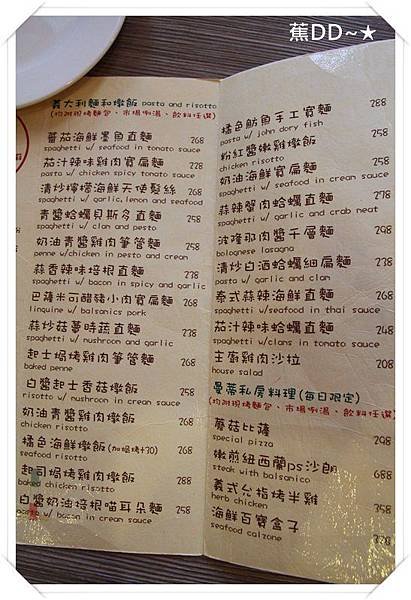 蕉DD~★
義大利麵和燉飯 pasta and risotto
(均附現烤麵包、市場例湯、飲料任選)
蕃茄海鮮墨魚直麵 268
spaghetti w/seafood in tomato sauce
茄汁辣味雞肉寬扁麵 238
pasta w/ chicken spicy tomato sauce
清炒檸檬海鮮天使髮絲 268
spaghetti w/ garlic, lemon and seafood
青醬蛤蠣貝斯多直麵 258
spaghetti w/ clan and pesto
奶油青醬雞肉筆管麵 258
penne w/chicken in pesto and cream
蒜香辣味培根直麵 238
spaghetti w/ bacon in spicy and garlic
巴薩米可醋豬小肉寬扁麵 258
linguine w/ balsanics pork
蒜炒菇蕈時蔬直麵 228
spaghetti w/ nushroon and garlic
起士焗烤雞肉筆管麵 268
baked penne
白醬起士香菇燉飯 258
risotto w/ nushroon in crean sauce
奶油青醬雞肉燉飯 268
chicken risotto
橘色海鮮燉飯 (加焗烤+30) 268
seafood risotto
起司焗烤雞肉燉飯 288
baked chicken risotto
白醬奶油培根喵耳朵麵 258
pasta w/ bacon in crean sauce
橘色魴魚手工寬麵 288
pasta w/ john dory fish
粉紅醬嫩雞燉飯 258
chicken risotto
奶油海鮮寬扁麵 258
spaghetti w/ seafood in crean sauce
蒜辣蟹肉蛤蠣直麵 278
spaghetti w/ garlic and crab neat
波隆那肉醬千層麵 298
bolognese lasagna
清炒白酒蛤蠣細扁麵 238
pasta w/ garlic and clan
泰式蒜辣海鮮直麵 268
spaghetti w/seafood in thai sauce
茄汁辣味蛤蠣直麵 248
spaghetti w/clans in tomato sauce
主廚雞肉沙拉 208
house salad
曼蒂私房料理(每日限定)
(均附現烤麵包、市場例湯、飲料任選)
蘑菇比薩 298
special pizza
嫩煎紐西蘭ps沙朗 688
steak with balsanico
義式允指烤半雞 358
herb chicken
海鮮百寶盒子
seafood calzone